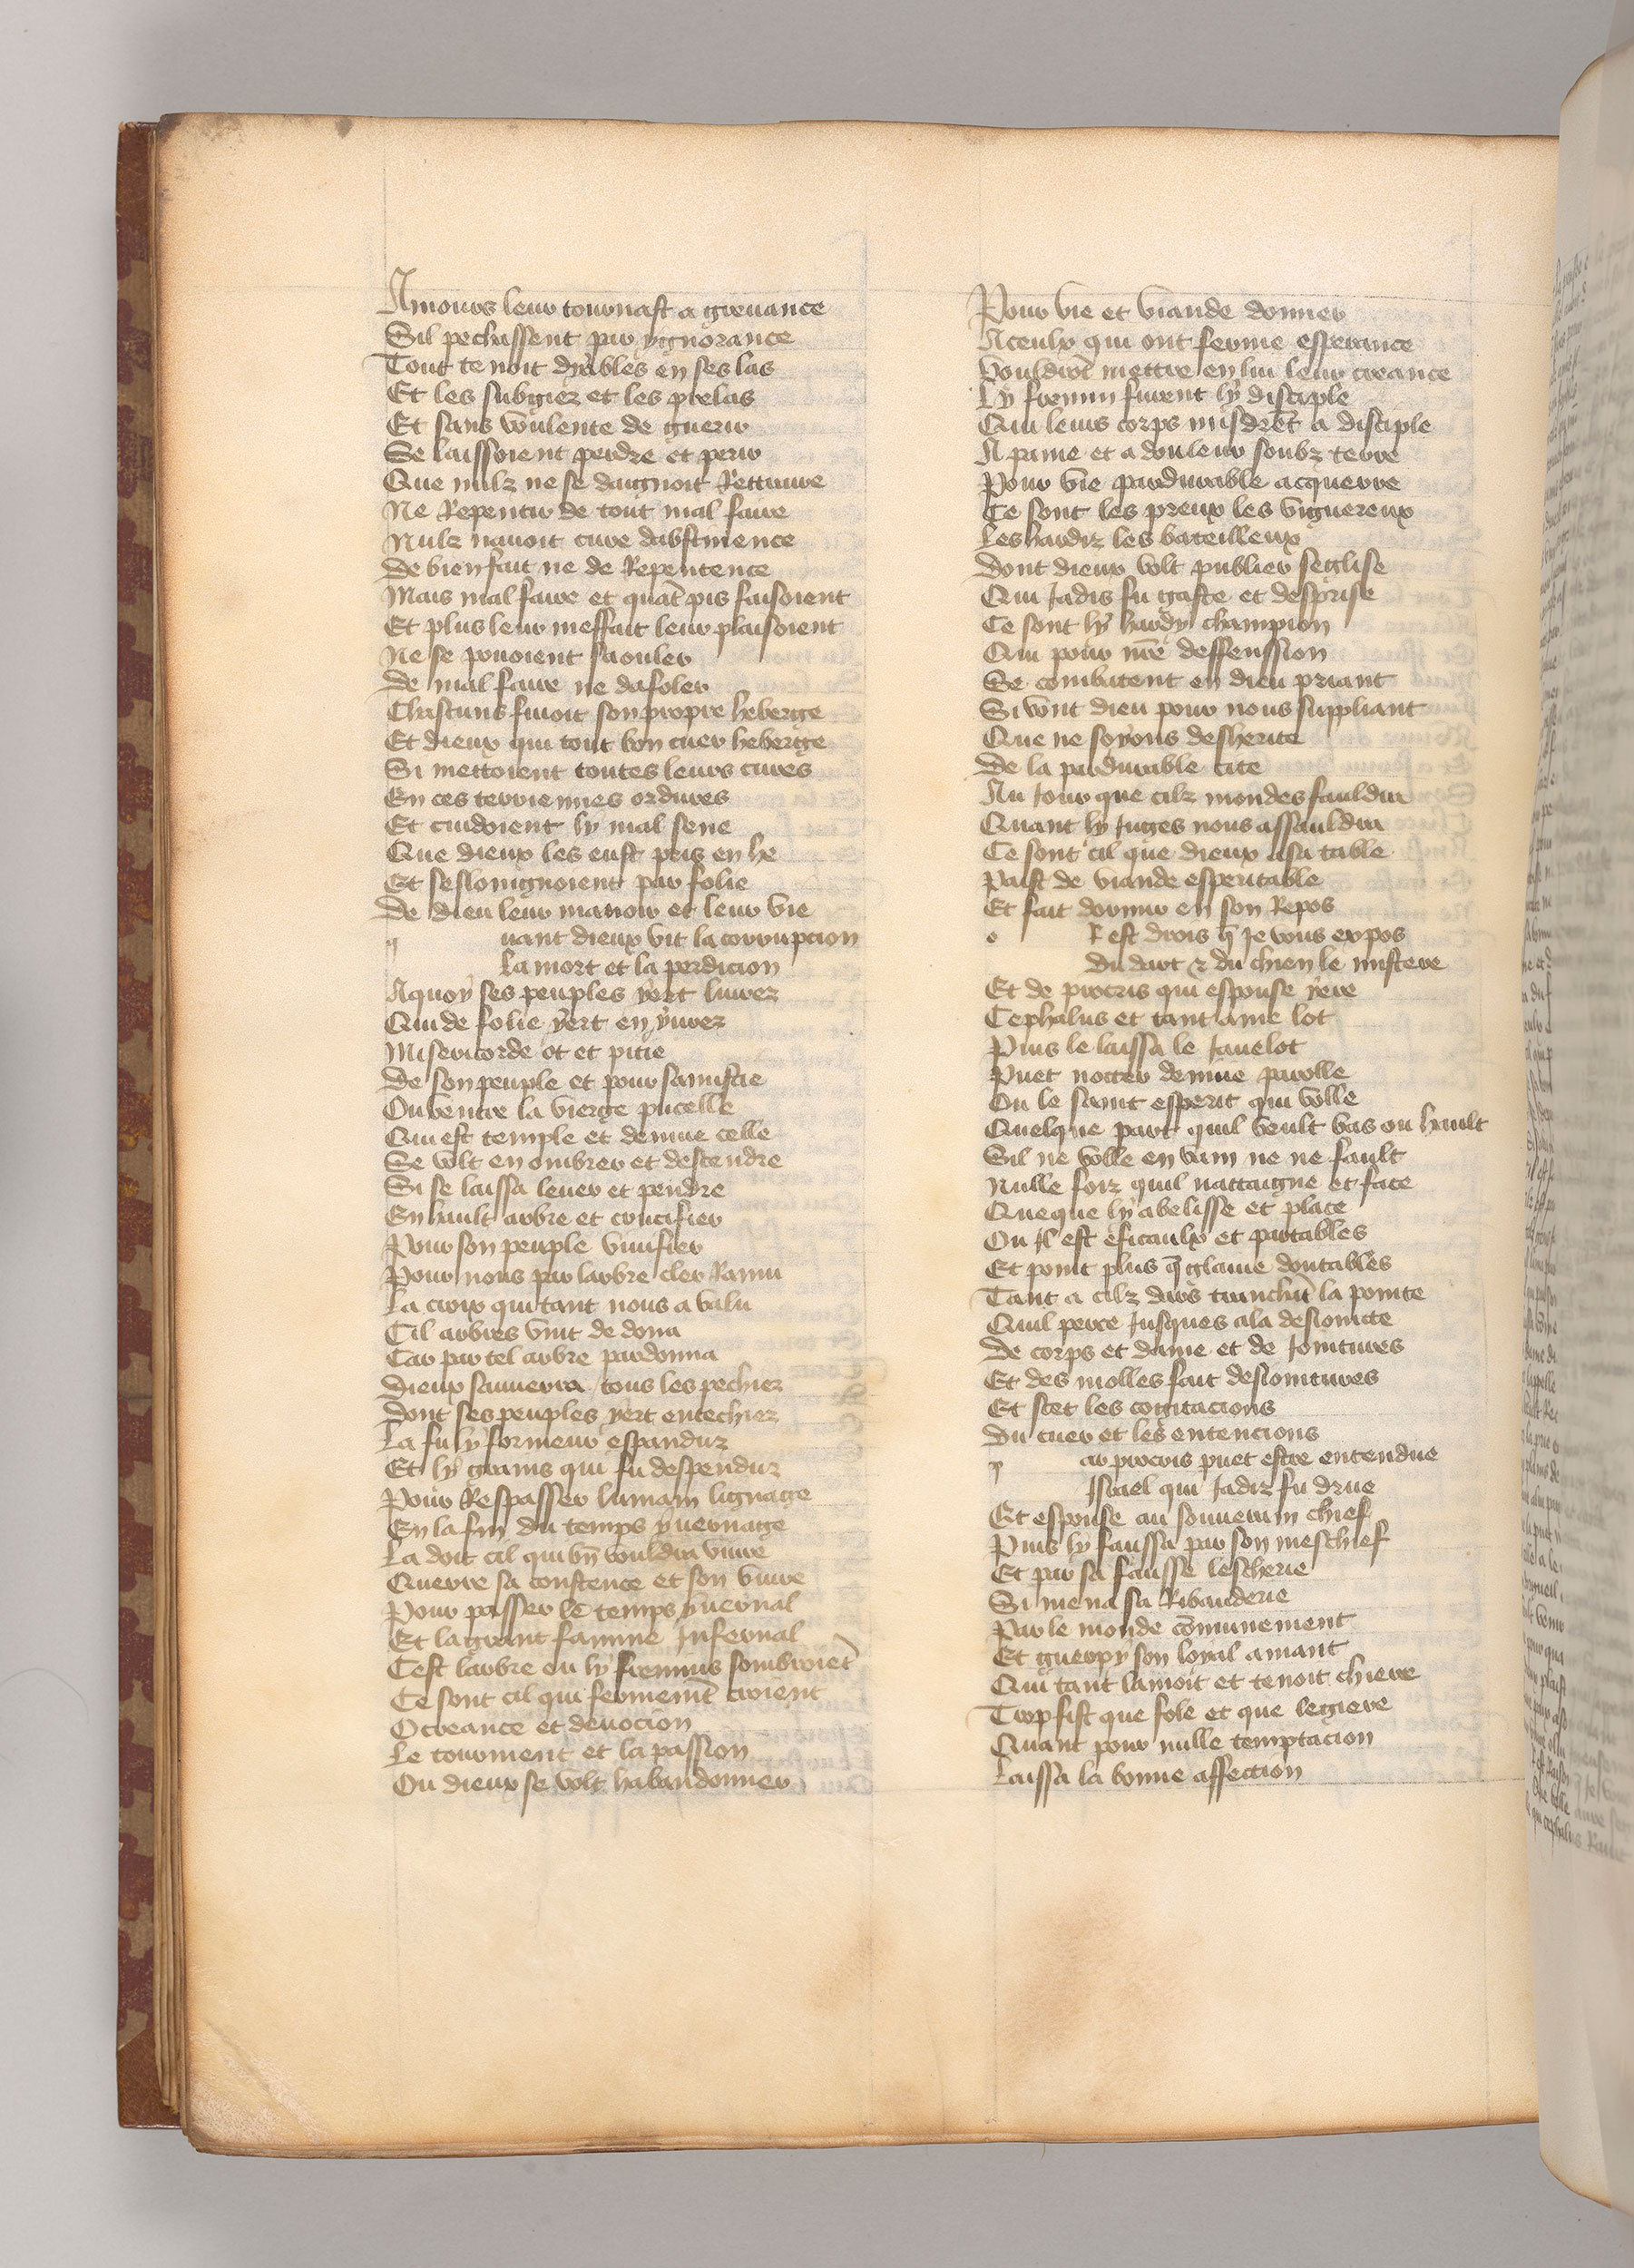 Amours leur tournast a greuance
Sil pechassent par ygnorance
Tout tenoit dyables en ses las
Et les subgiez et les prelas
Et sans voulente de guerir
Se laissoient perdre et perir
Que nulz ne se daignoit Rettraire
Ne Repentir de tout mal faire
Nulz nauoit cure dabstinence
De bien fait ne de Repentence
Mais mal faire et quāt pis faisoient
Et plus leur meffait leur plaisoient
Ne se pouoient saouler
De mal faire ne dafoler
Chascuns fuioit son propre heberge
Et dieux qui tout bon cuer heberge
Si mettoient toutes leurs cures
En ces terriennes ordures
Et cuidoient ly mal sene
Que dieux les eust pris en he
Et seslongnoient par folie
De dieu leur manoir et leur vie
q uant dieux vit la corrupcion
La mort et la perdicion
Aquoy ses peuples yert liurez
Qui de folie yert en yurez
Misericorde ot et pitie
De son peuple et pour samistie
Ou ventre la vierge pucelle
Qui est temple et deuine celle
Se volt en ombrer et descendre
Si se laissa leuer et pendre
En hault arbre et crucifier
Pour son peuple viuifier
Pour nous par larbre cler Ramu
La croix qui tant nous a valu
Cil arbres vint de dona
Car par tel arbre pardonna
Dieux sauuerra tous les pechiez
Dont ses peuples yert entechiez
La fu ly formeur espanduz
Et ly grains qui fu despenduz
Pour Respasser lumain lignage
En la fin du temps yuernage
La doit cil qui bn̄ vouldra viure
Querre sa constence et son viure
Pour passer le temps yuernal
Et la grant famine Infernal
Cest larbre ou ly fremius sombroiēt
Ce sont cil qui fermemēt croient
O creance et deuocion
Le tourment et la passion
Ou dieux se volt habandonner
Pour vie et viande donner
Aceulx qui ont ferme esperance
Vouldrōt mettre en lui leur creance
Ly fremiu furent ly disciple
Qui leurs corps misdrēt a disciple
A paine et a douleur soubz terre
Pour vie pardurable acquerre
Ce sont les preux les viguereux
Les hardiz les bateilleux
Dont dieux volt publier seglise
Qui Jadis fu gaste et desprise
Ce sont ly hardy champion
Qui pour nr̄e deffenssion
Se combatent en dieu priant
Si vont dieu pour nous suppliant
Que ne soyons desherite
De la pardurable cite
Au Jour que cilz mondes fauldra
Quant ly Juges nous assauldra
Ce sont cil que dieux a sa table
Paist de viande esperitable
Et fait dormir en son Repos
o R est drois q̄ Je vous expos
Du dart & du chien le mistere
Et de procris qui espouse yere
Cephalus et tant ame lot
Puis le laissa le Jauelot
Puet notter deuine parolle
Ou le saint esperit qui volle
Quelque part quil veult bas ou hault
Sil ne volle en vain ne ne fault
Nulle foiz quil nattaigne et face
Queque ly abelisse et place
Ou Il est eficaulx et partables
Et point plus q̄ glaiue doutables
Tant a cilz dars trenchāt la pointe
Quil perce Jusques ala desiointe
De corps et dame et de Jointures
Et des molles fait desiointures
Et scet les cogitacions
Du cuer et les entencions
p ar procris puet estre entendue
Israel qui Jadiz fu drue
Et espouse au souuerain chief
Puis ly faussa par son meschief
Et par sa fausse lescherie
Si mena sa Ribauderie
Par le monde cōmunement
Et guerpy son loyal amant
Qui tant lamoit et tenoit chiere
Trop fist que fole et que legiere
Quant pour nulle temptacion
Laissa la bonne affection